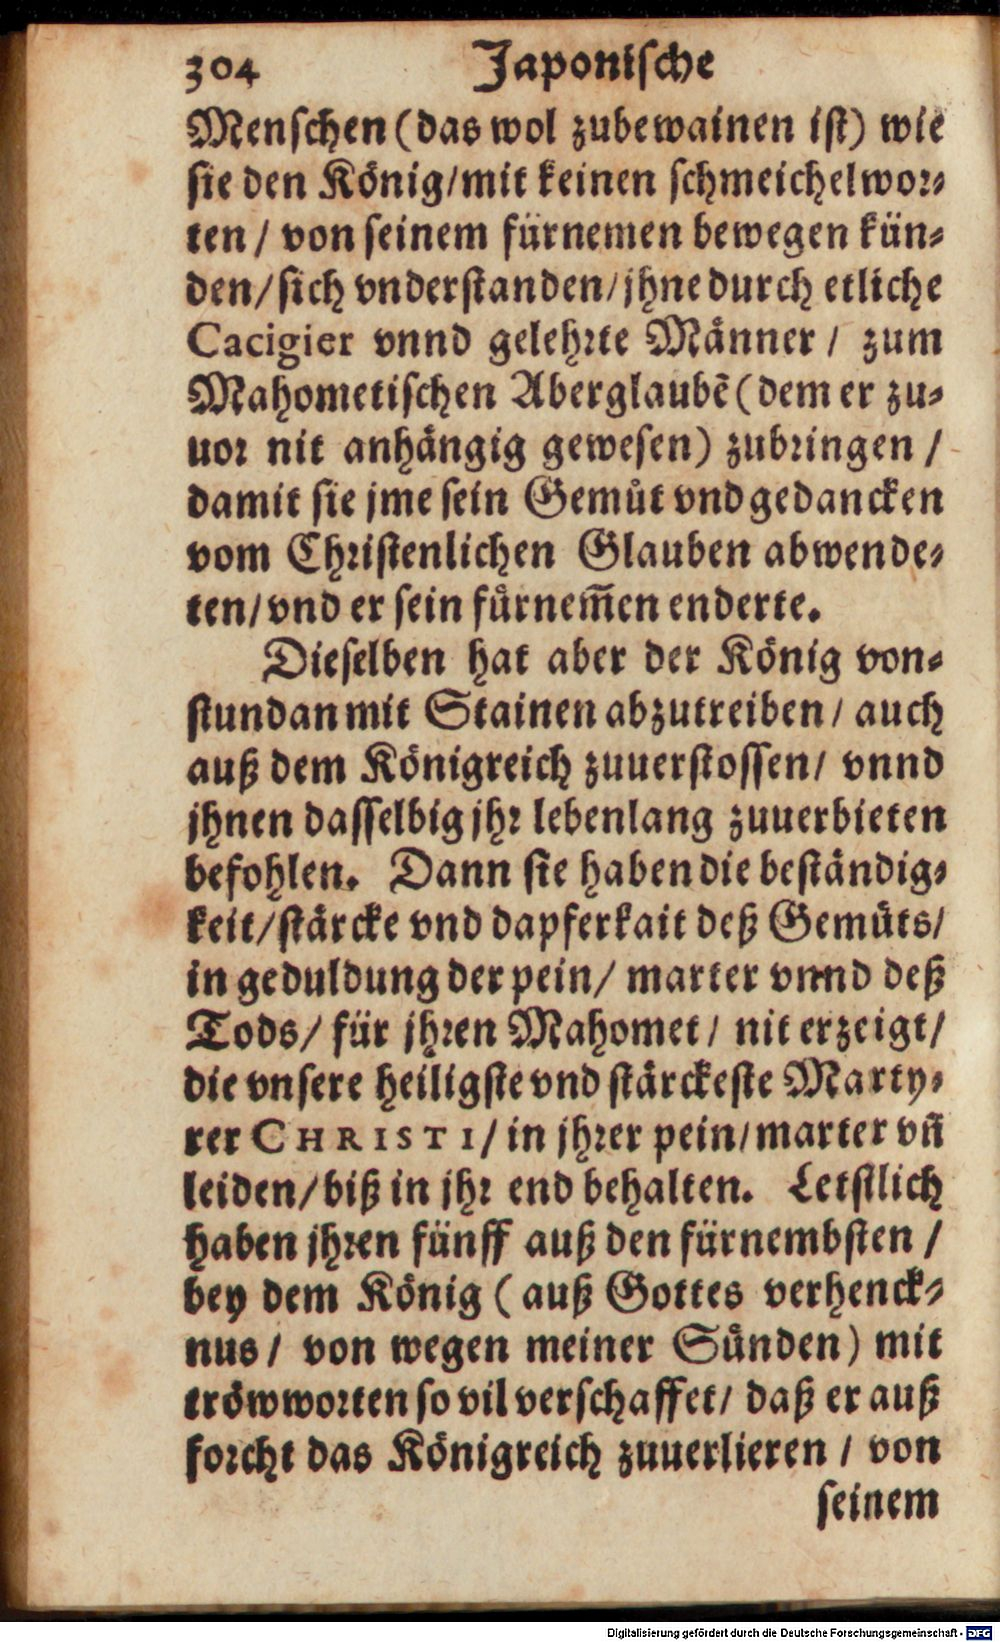 304 Japonische
Menschen (das wol zubewainen ist) wie
sie den König/mit keinen schmeichelwor-
ten / von seinem fürnemen bewegen kün-
den/sich vnderstanden/jhne durch etliche
Cacigier vnnd gelehrte Männer / zum
Mahometischen Aberglaubẽ (dem er zu-
uor nit anhängig gewesen) zubringen /
damit sie jme sein Gemüt vnd gedancken
vom Christenlichen Glauben abwende-
ten/vnd er sein fürnem̃en enderte.
Dieselben hat aber der König von-
stundan mit Stainen abzutreiben/ auch
auß dem Königreich zuuerstossen/ vnnd
jhnen dasselbig jhr lebenlang zuuerbieten
befohlen. Dann sie haben die beständig-
keit/stärcke vnd dapferkait deß Gemüts/
in geduldung der pein/ marter vnnd deß
Tods/ für jhren Mahomet/ nit erzeigt/
die vnsere heiligste vnd stärckeste Marty-
rer CHRISTI/ in jhrer pein/marter vñ
leiden/biß in jhr end behalten. Letstlich
haben jhren fünff auß den fürnembsten /
bey dem König (auß Gottes verhenck-
nus/ von wegen meiner Sünden) mit
tröwworten so vil verschaffet/ daß er auß
forcht das Königreich zuuerlieren / von
seinem
Digitalisierung gefördert durch die Deutsche Forschungsgemeinschaft - DFG